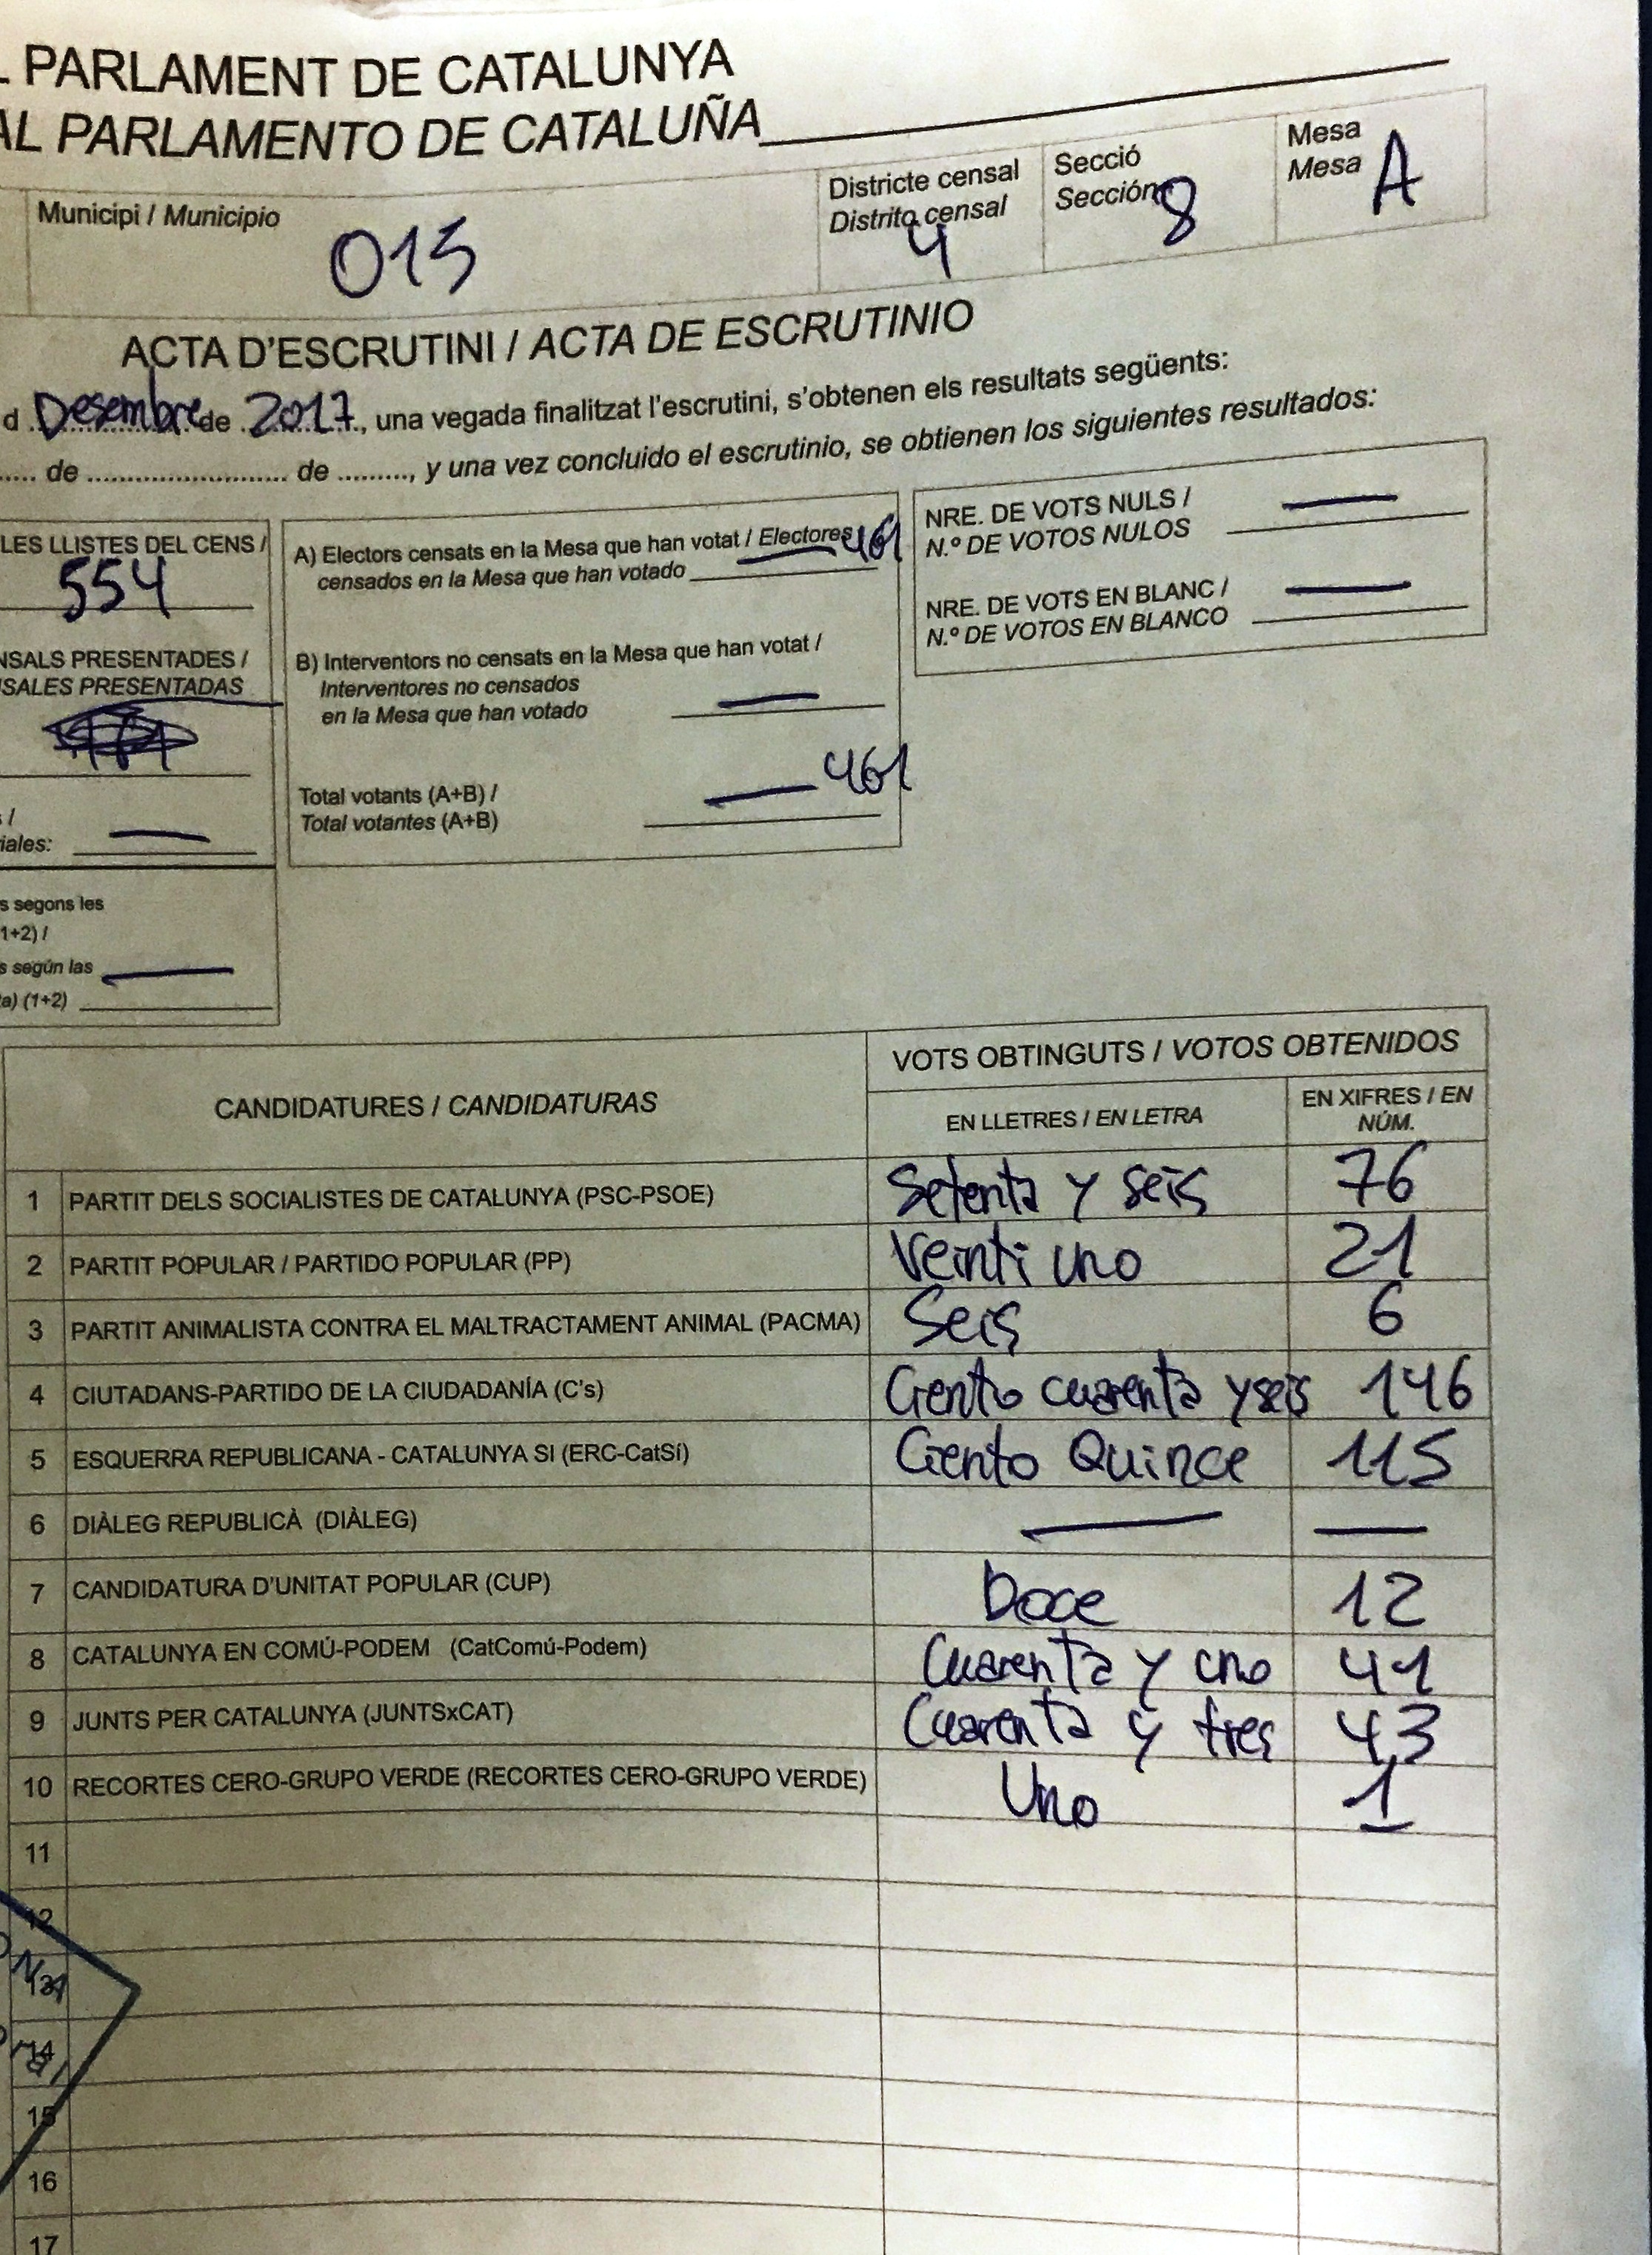 PARLAMENT DE CATALUNYA
AL PARLAMENTO DE CATALUÑA
Municipi / Municipio
013
Districte censal
Distrito censal
4
Secció
Sección
8
Mesa
Mesa
A
ACTA D'ESCRUTINI / ACTA DE ESCRUTINIO
d Desembre de 2017, una vegada finalitzat l'escrutini, s'obtenen els resultats següents:
de ........ de ........, y una vez concluido el escrutinio, se obtienen los siguientes resultados:
LES LLISTES DEL CENS /
554
SALES PRESENTADAS
A) Electors censats en la Mesa que han votat / Electores
censados en la Mesa que han votado
461
B) Interventors no censats en la Mesa que han votat /
Interventores no censados
en la Mesa que han votado
Total votants (A+B) /
Total votantes (A+B)
461
NRE. DE VOTS NULS /
N.º DE VOTOS NULOS
NRE. DE VOTS EN BLANC /
N.º DE VOTOS EN BLANCO
s segons les
1+2) /
s según las
a) (1+2)
CANDIDATURES / CANDIDATURAS
VOTS OBTINGUTS / VOTOS OBTENIDOS
EN LLETRES / EN LETRA
EN XIFRES / EN NÚM.
1 PARTIT DELS SOCIALISTES DE CATALUNYA (PSC-PSOE) Setenta y seis 76
2 PARTIT POPULAR / PARTIDO POPULAR (PP) Veinti uno 21
3 PARTIT ANIMALISTA CONTRA EL MALTRACTAMENT ANIMAL (PACMA) Seis 6
4 CIUTADANS-PARTIDO DE LA CIUDADANÍA (C's) Ciento cuarenta y seis 146
5 ESQUERRA REPUBLICANA - CATALUNYA SI (ERC-CatSí) Ciento Quince 115
6 DIÀLEG REPUBLICÀ (DIÀLEG)
7 CANDIDATURA D'UNITAT POPULAR (CUP) Doce 12
8 CATALUNYA EN COMÚ-PODEM (CatComú-Podem) Cuarenta y uno 41
9 JUNTS PER CATALUNYA (JUNTSxCAT) Cuarenta y tres 43
10 RECORTES CERO-GRUPO VERDE (RECORTES CERO-GRUPO VERDE) Uno 1
11
12
15
16
17